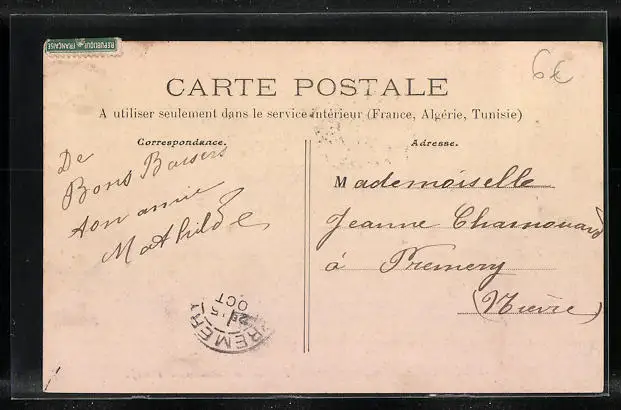 REPUBLIQUE FRANÇAISE
6€
CARTE POSTALE
A utiliser seulement dans le service intérieur (France, Algérie, Tunisie)
Correspondance.
De
Bons Baisers
ton amie
Mathilde
Adresse.
Mademoiselle
Jeanne
à Premery
(Nièvre)
PREMERY
OCT